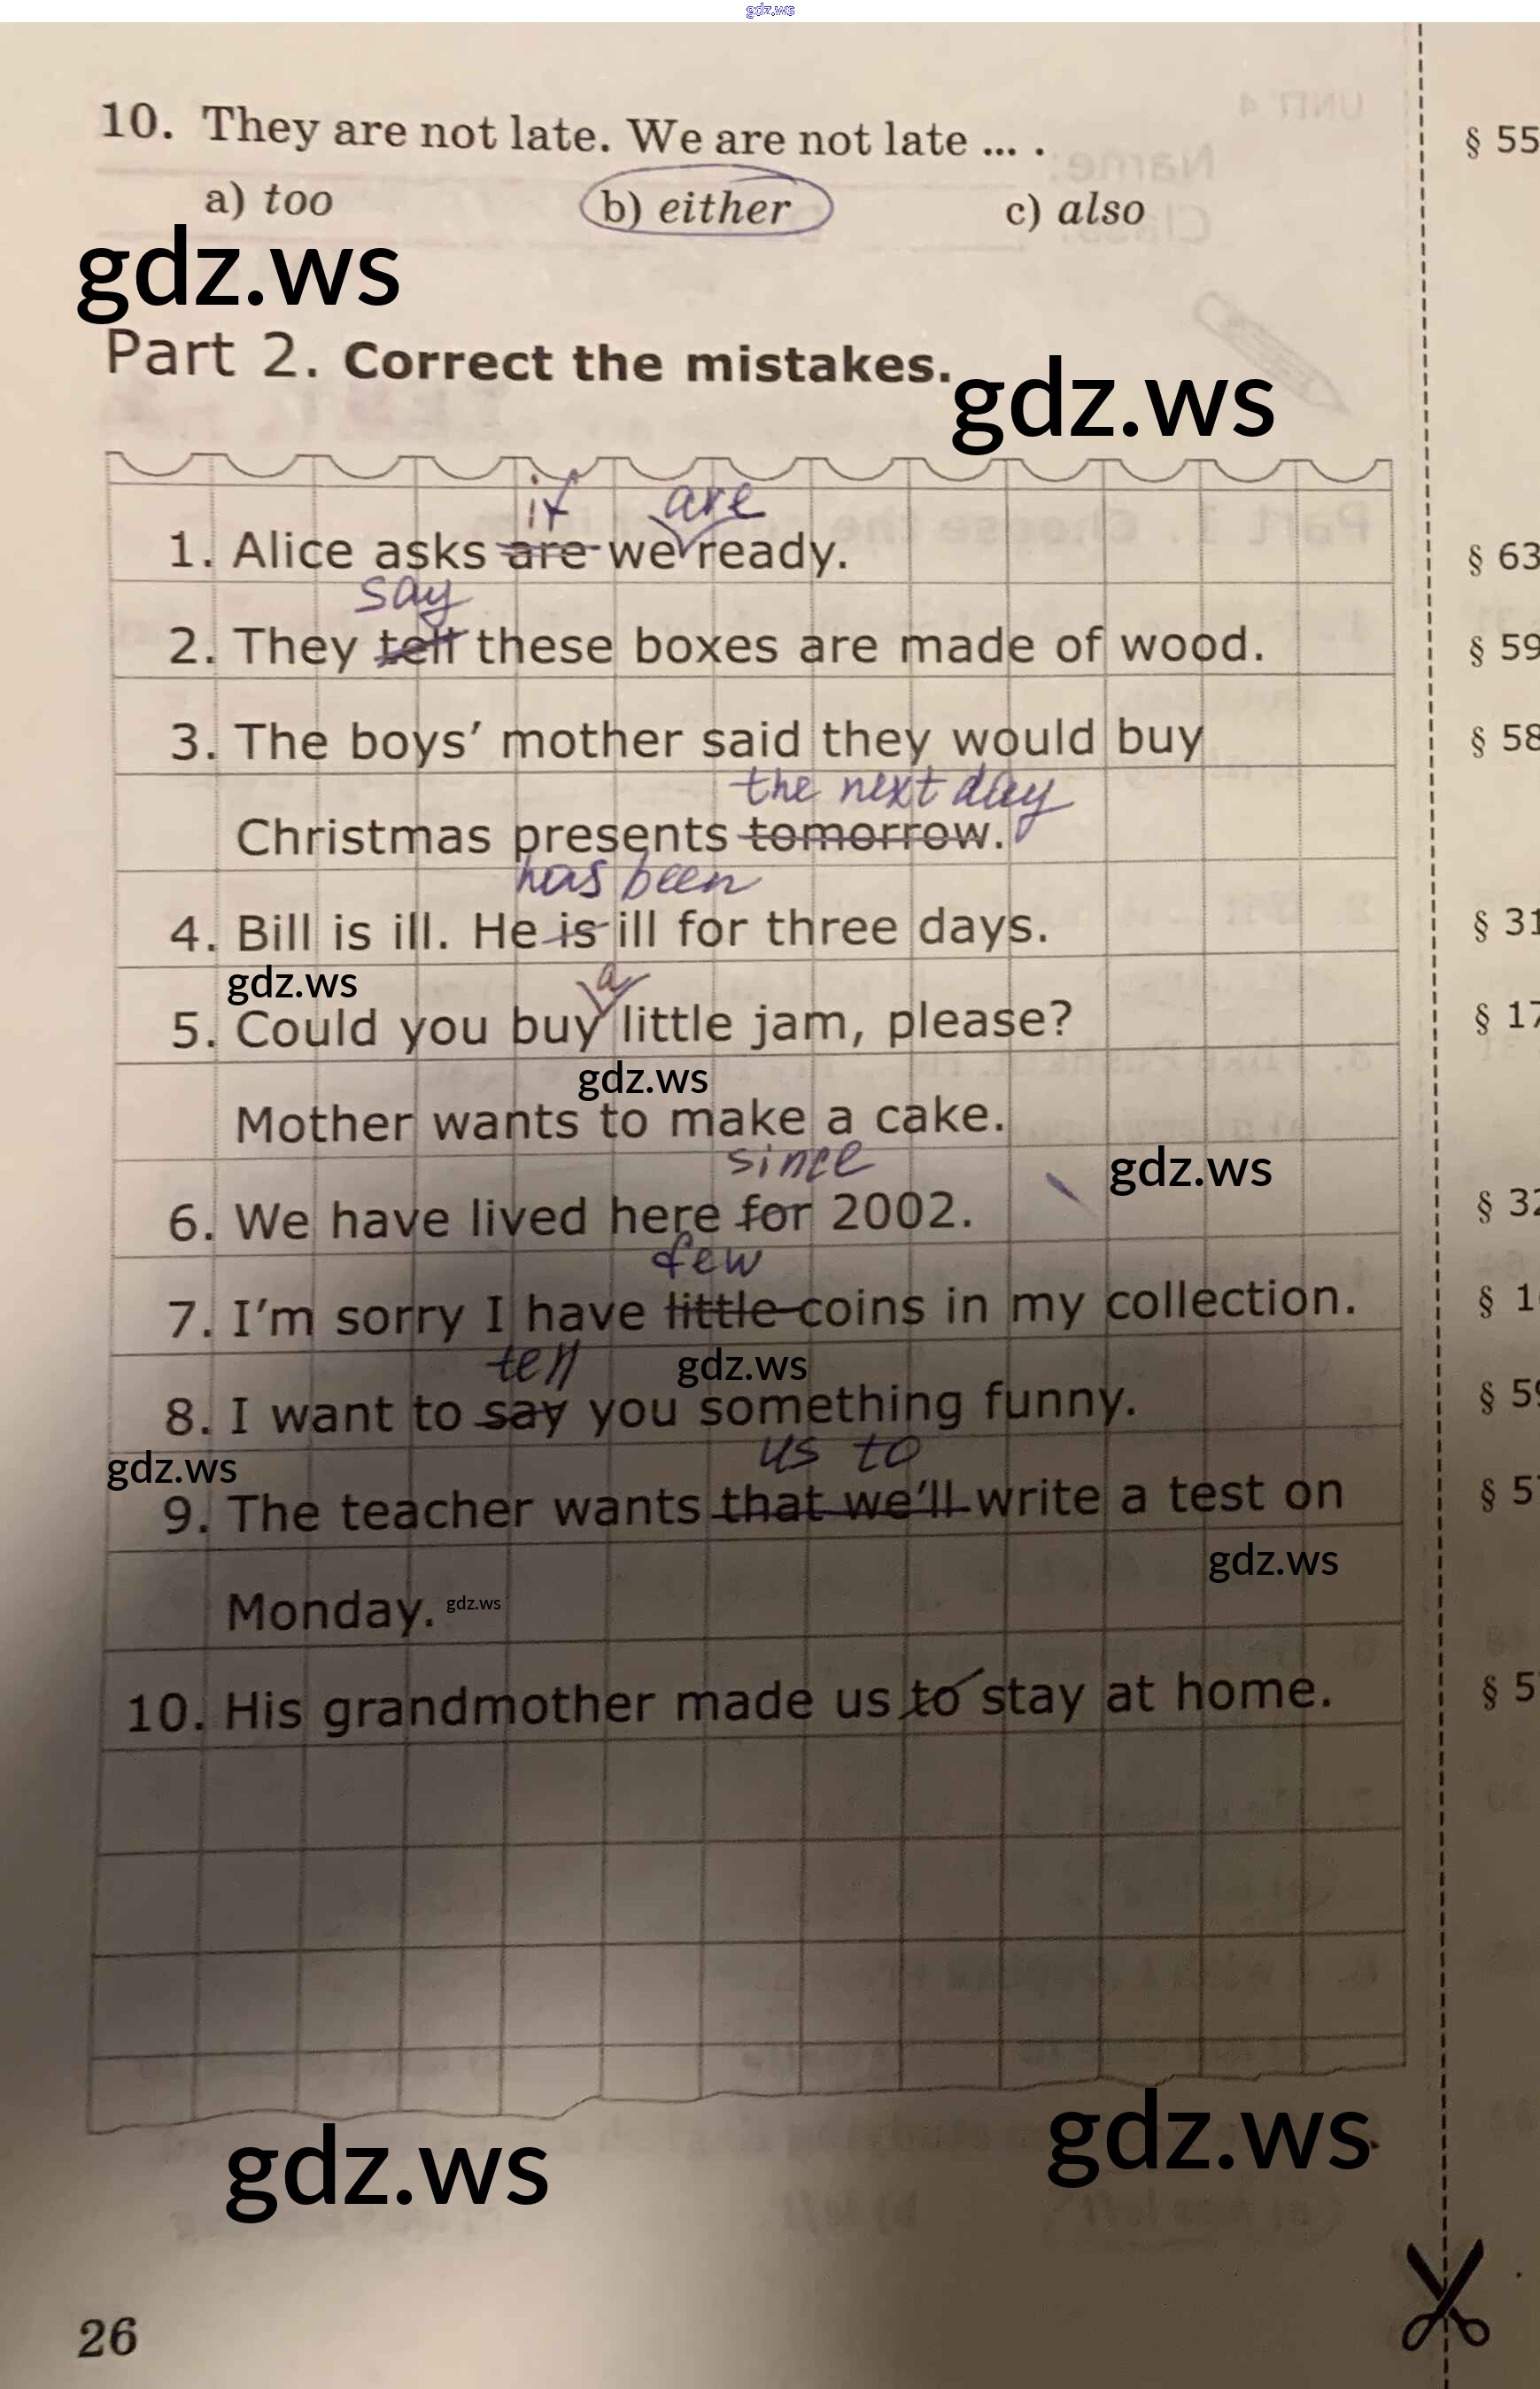 gdz.ws
10. They are not late. We are not late ... .
§ 55
a) too b) either c) also
gdz.ws
Part 2. Correct the mistakes.
gdz.ws
if are
1. Alice asks are we ready.
§ 63
say
2. They tell these boxes are made of wood.
§ 59
3. The boys’ mother said they would buy
§ 58
the next day
Christmas presents tomorrow.
has been
4. Bill is ill. He is ill for three days.
§ 31
gdz.ws
a
5. Could you buy little jam, please?
§ 17
gdz.ws
Mother wants to make a cake.
since
gdz.ws
6. We have lived here for 2002.
§ 32
few
7. I’m sorry I have little coins in my collection.
§ 1
tell
gdz.ws
8. I want to say you something funny.
§ 59
us to
gdz.ws
9. The teacher wants that we’ll write a test on
§ 5
gdz.ws
Monday. gdz.ws
10. His grandmother made us to stay at home.
§ 5
gdz.ws
gdz.ws
26